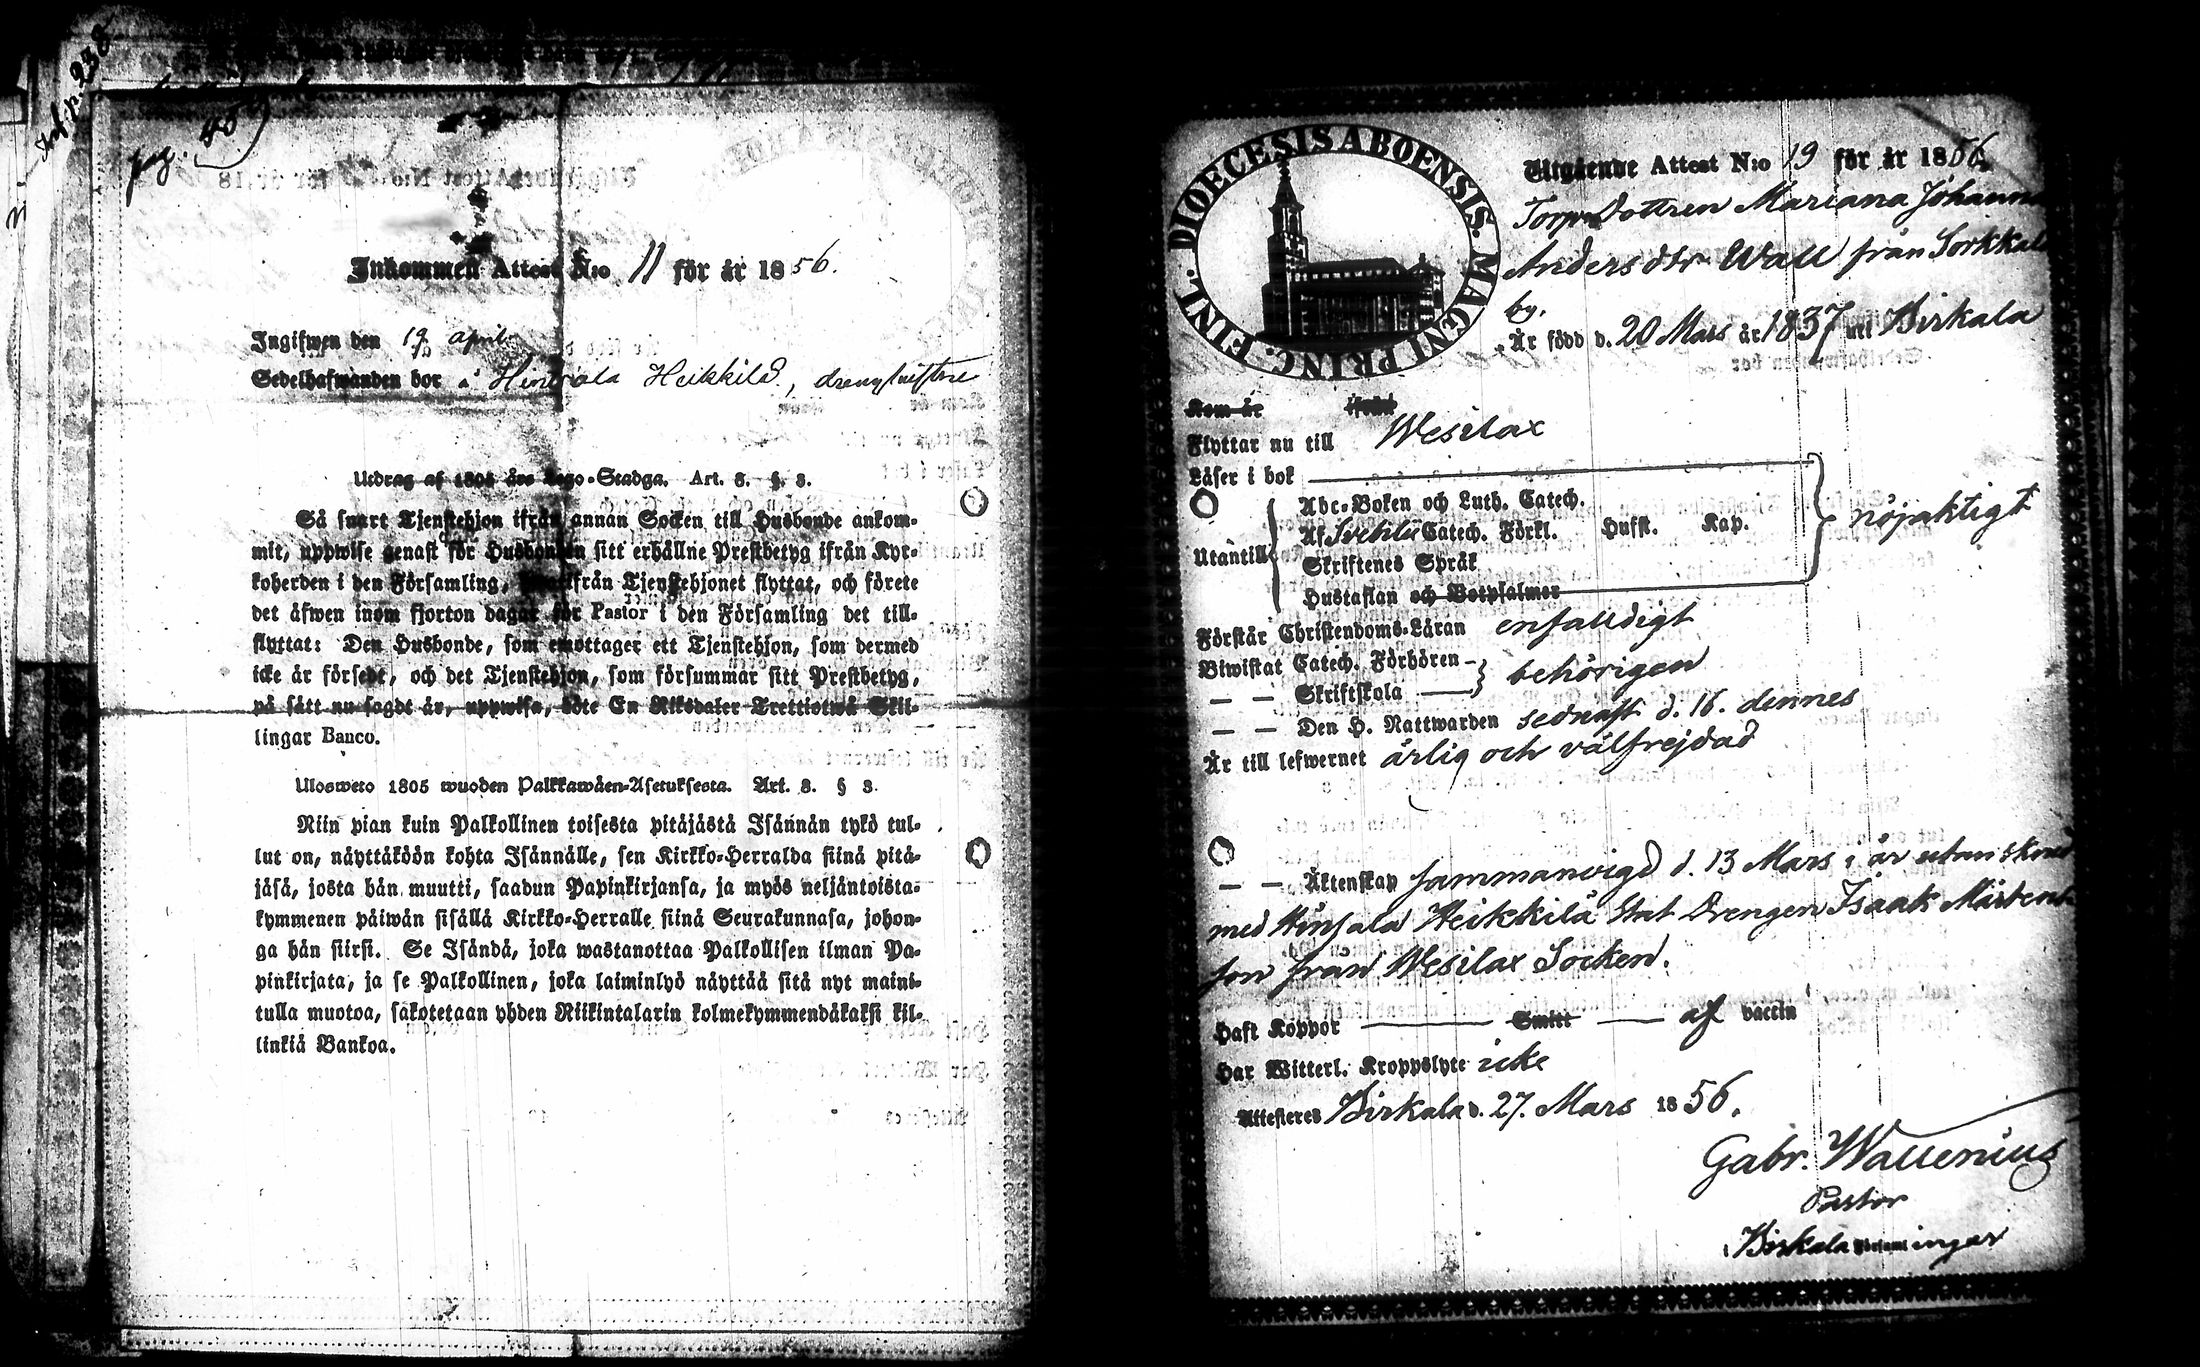 Inf. p. 238
pag. 45
Inkommen Attest N:o 11 för år 1856.
Ingifwen den 19 april
Sedelhafwanden bor å Hinsala Heikkilä, drenghustru
Utdrag af 1805 års Lego-Stadga. Art. 8. §. 3.
Så snart Tjenstehjon ifrån annan Socken till Husbonde ankom-
mit, uppwise genast för Husbonden sitt erhållne Prestbetyg ifrån Kyr-
koherden i den Församling, ifrån Tjenstehjonet flyttat, och förete
det åfwen inom fjorton dagar för Pastor i den Församling det till-
flyttat: Den Husbonde, som emottager ett Tjenstehjon, som dermed
icke är försedt, och det Tjenstehjon, som försummar sitt Prestbetyg,
på sått nu sagdt är, uppwisa, böte En Riksdaler Trettiotwå Skil-
lingar Banco.
Ulosweto 1805 wuoden Palkkawäen-Asetuksesta. Art. 8. § 3.
Niin pian kuin Palkollinen toisesta pitäjästä Isännän tykö tul-
lut on, näyttäköön kohta Isännälle, sen Kirkko-Herralda siinä pitä-
jäsä, josta hän muutti, saadun Papinkirjansa, ja myös neljäntoista-
kymmenen päiwän sisällä Kirkko-Herralle siinä Seurakunnasa, johon-
ga hän siirsi. Se Isändä, joka wastanottaa Palkollisen ilman Pa-
pinkirjata, ja se Palkollinen, joka laiminlyö näyttää sitä nyt maini-
tulla muotoa, sakotetaan yhden Riikintalarin kolmekymmendäkaksi kil-
linkiä Bankoa.
FINL. DIOECESIS ABOENSIS. MAGNI PRINC.
Utgående Attest N:o 19 för år 1856.
Torp Dottren Mariana Johanna
Anders dtr Wall från Sorkkala
by.
Är född d. 20 Mars år 1837 uti Birkala
Kom år ifrån
Flyttar nu till Wesilax
Läser i bok
Abc-Boken och Luth. Catech.
Af Svebilii Catech. Förkl. Hufst. Kap.
Utantill nöjaktigt
Skriftenes Språk
Hustaflan och Botpsalmer
Förstår Christendoms-Läran enfalldigt
Biwistat Catech. Förhören
— — Skriftskola behörigen
— — Den H. Nattwarden sednast d. 16. dennes
Är till lefwernet ärlig och välfrejdad
— — Äktenskap sammanvigd d. 13 Mars i år utom sknd
med Hinsala Heikkilä Stat Drengen Isaak Mårtens
son från Wesilax Socken.
Haft Koppor — Smitt — af vaccin
Har Witterl. Kroppslyte icke
Attesteres Birkala d. 27. Mars 1856.
Gabr. Wallenius
Pastor
i Birkala Församlingar